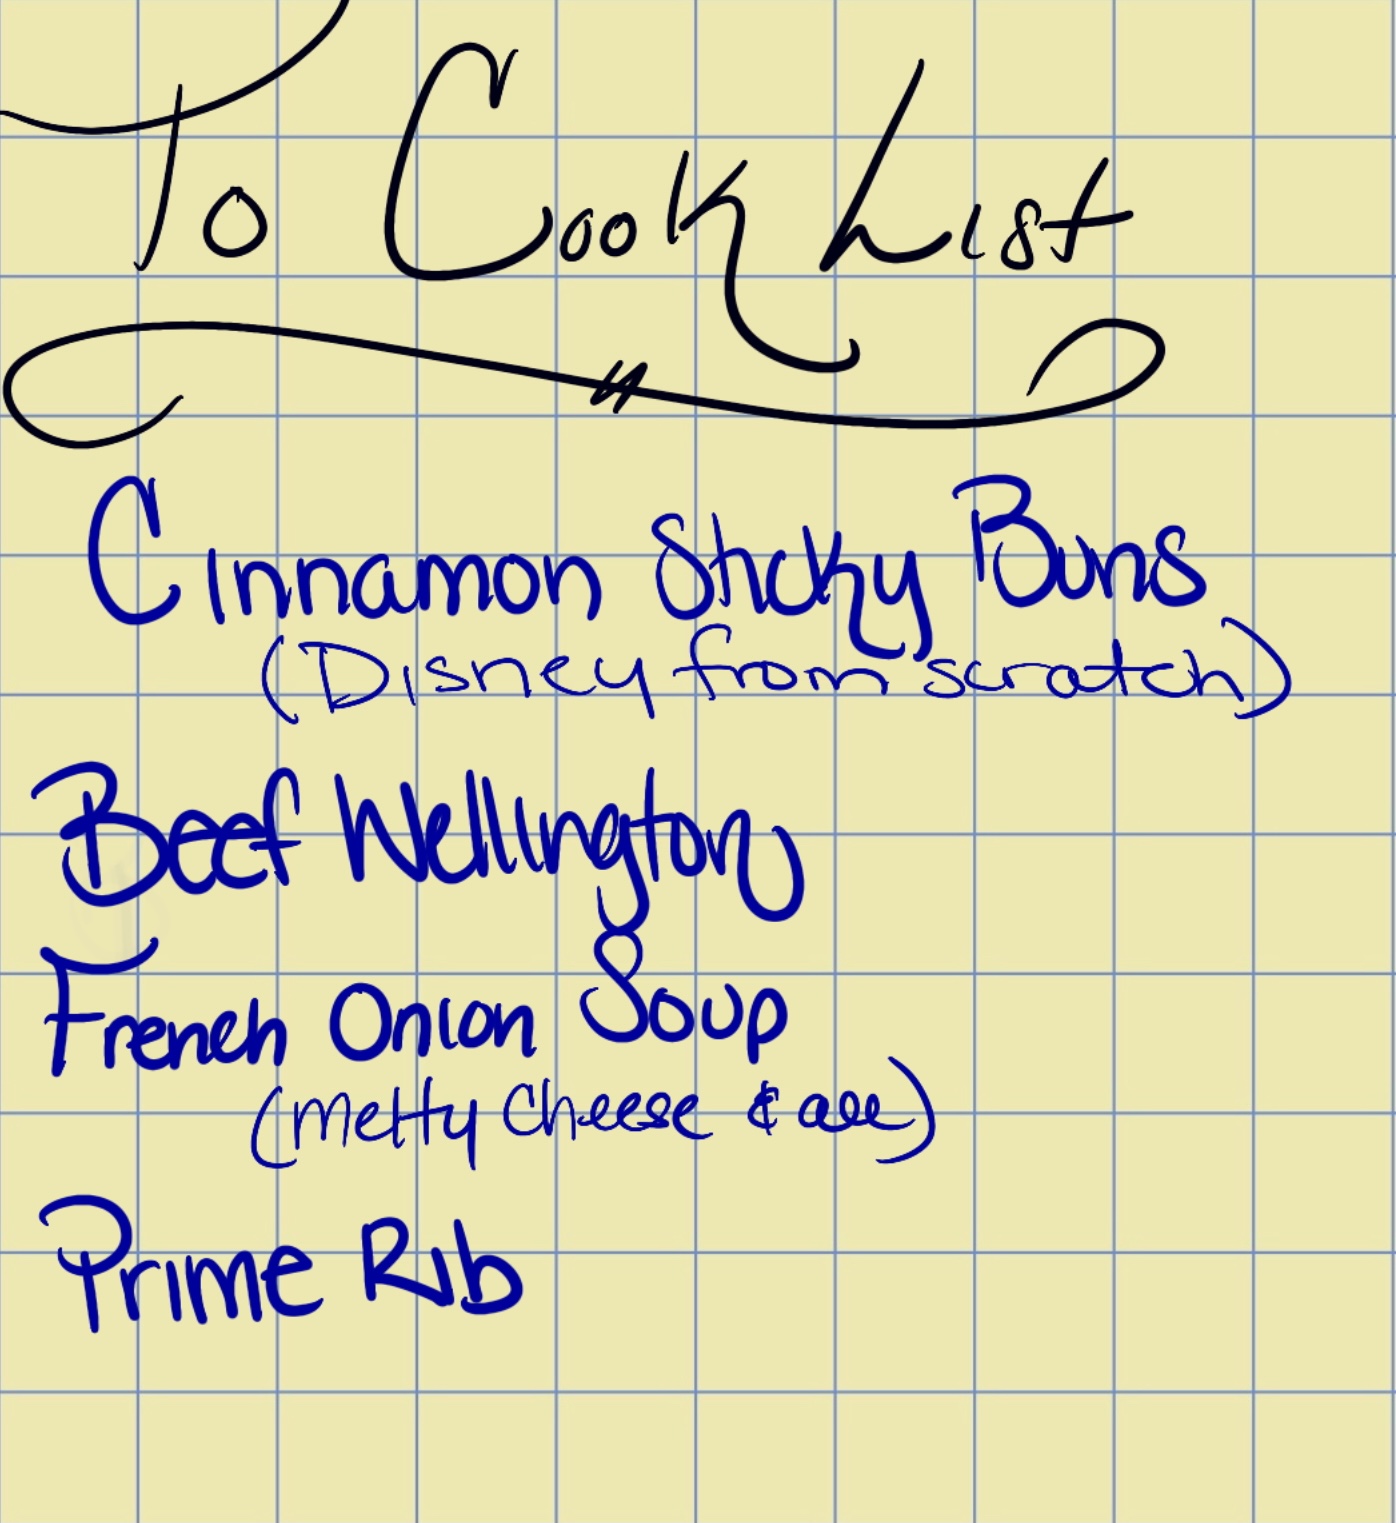 To Cook List
Cinnamon Sticky Buns
(Disney from scratch)
Beef Wellington
French Onion Soup
(melty cheese & all)
Prime Rib